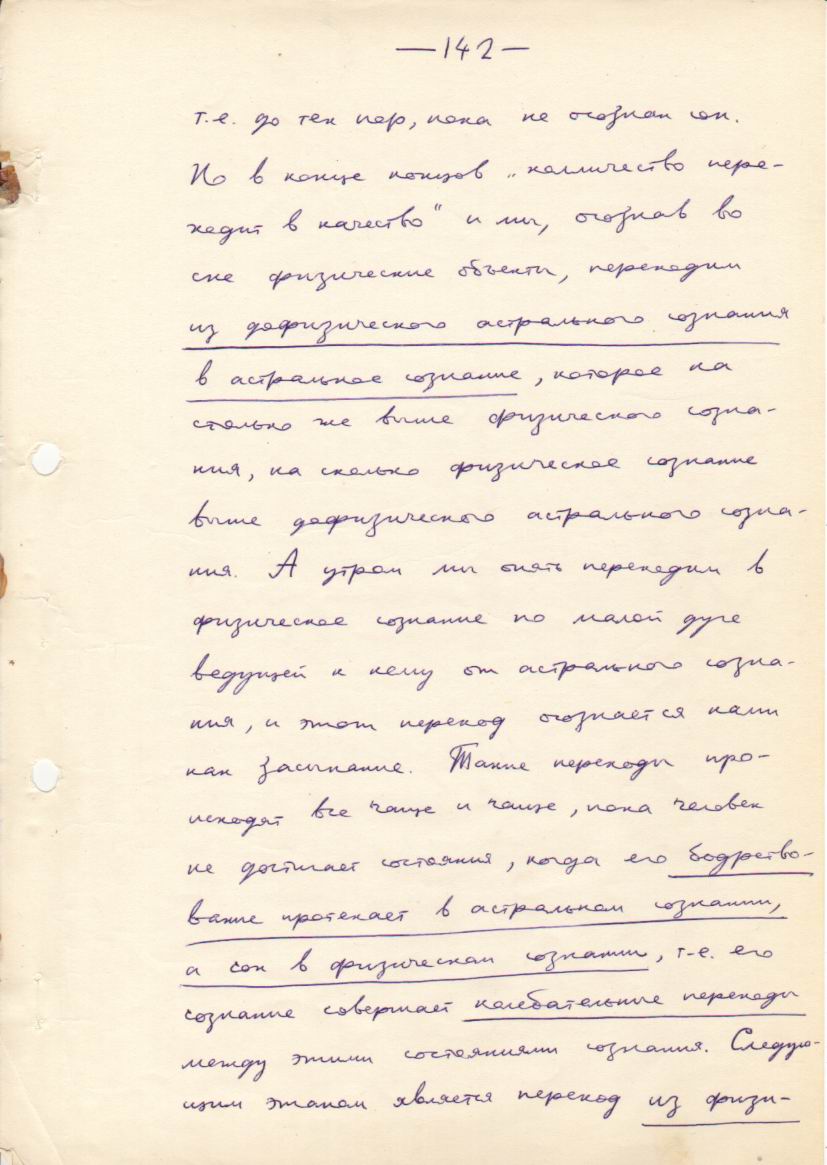 —142—
т.е. до тех пор, пока не осознан сон.
Но в конце концов „количество пере-
ходит в качество" и мы, осознав во
сне физические объекты, переходим
из дофизического астрального сознания
в астральное сознание, которое на
столько же выше физического созна-
ния, на сколько физическое сознание
выше дофизического астрального созна-
ния. А утром мы опять переходим в
физическое сознание по малой дуге
ведущей к нему от астрального созна-
ния, и этот переход осознается нами
как засыпание. Такие переходы про-
исходят все чаще и чаще, пока человек
не достигает состояния, когда его бодрство-
вание протекает в астральном сознании,
а сон в физическом сознании, т.е. его
сознание совершает колебательные переходы
между этими состояниями сознания. Следую-
щим этапом является переход из физи-